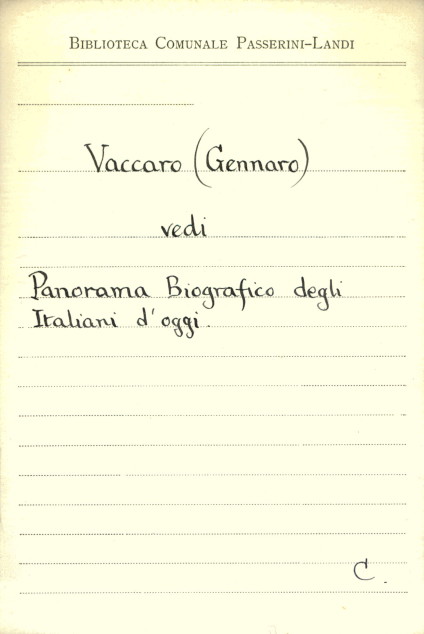 Biblioteca Comunale Passerini–Landi
Vaccaro (Gennaro)
vedi
Panorama Biografico degli
Italiani d'oggi.
C.